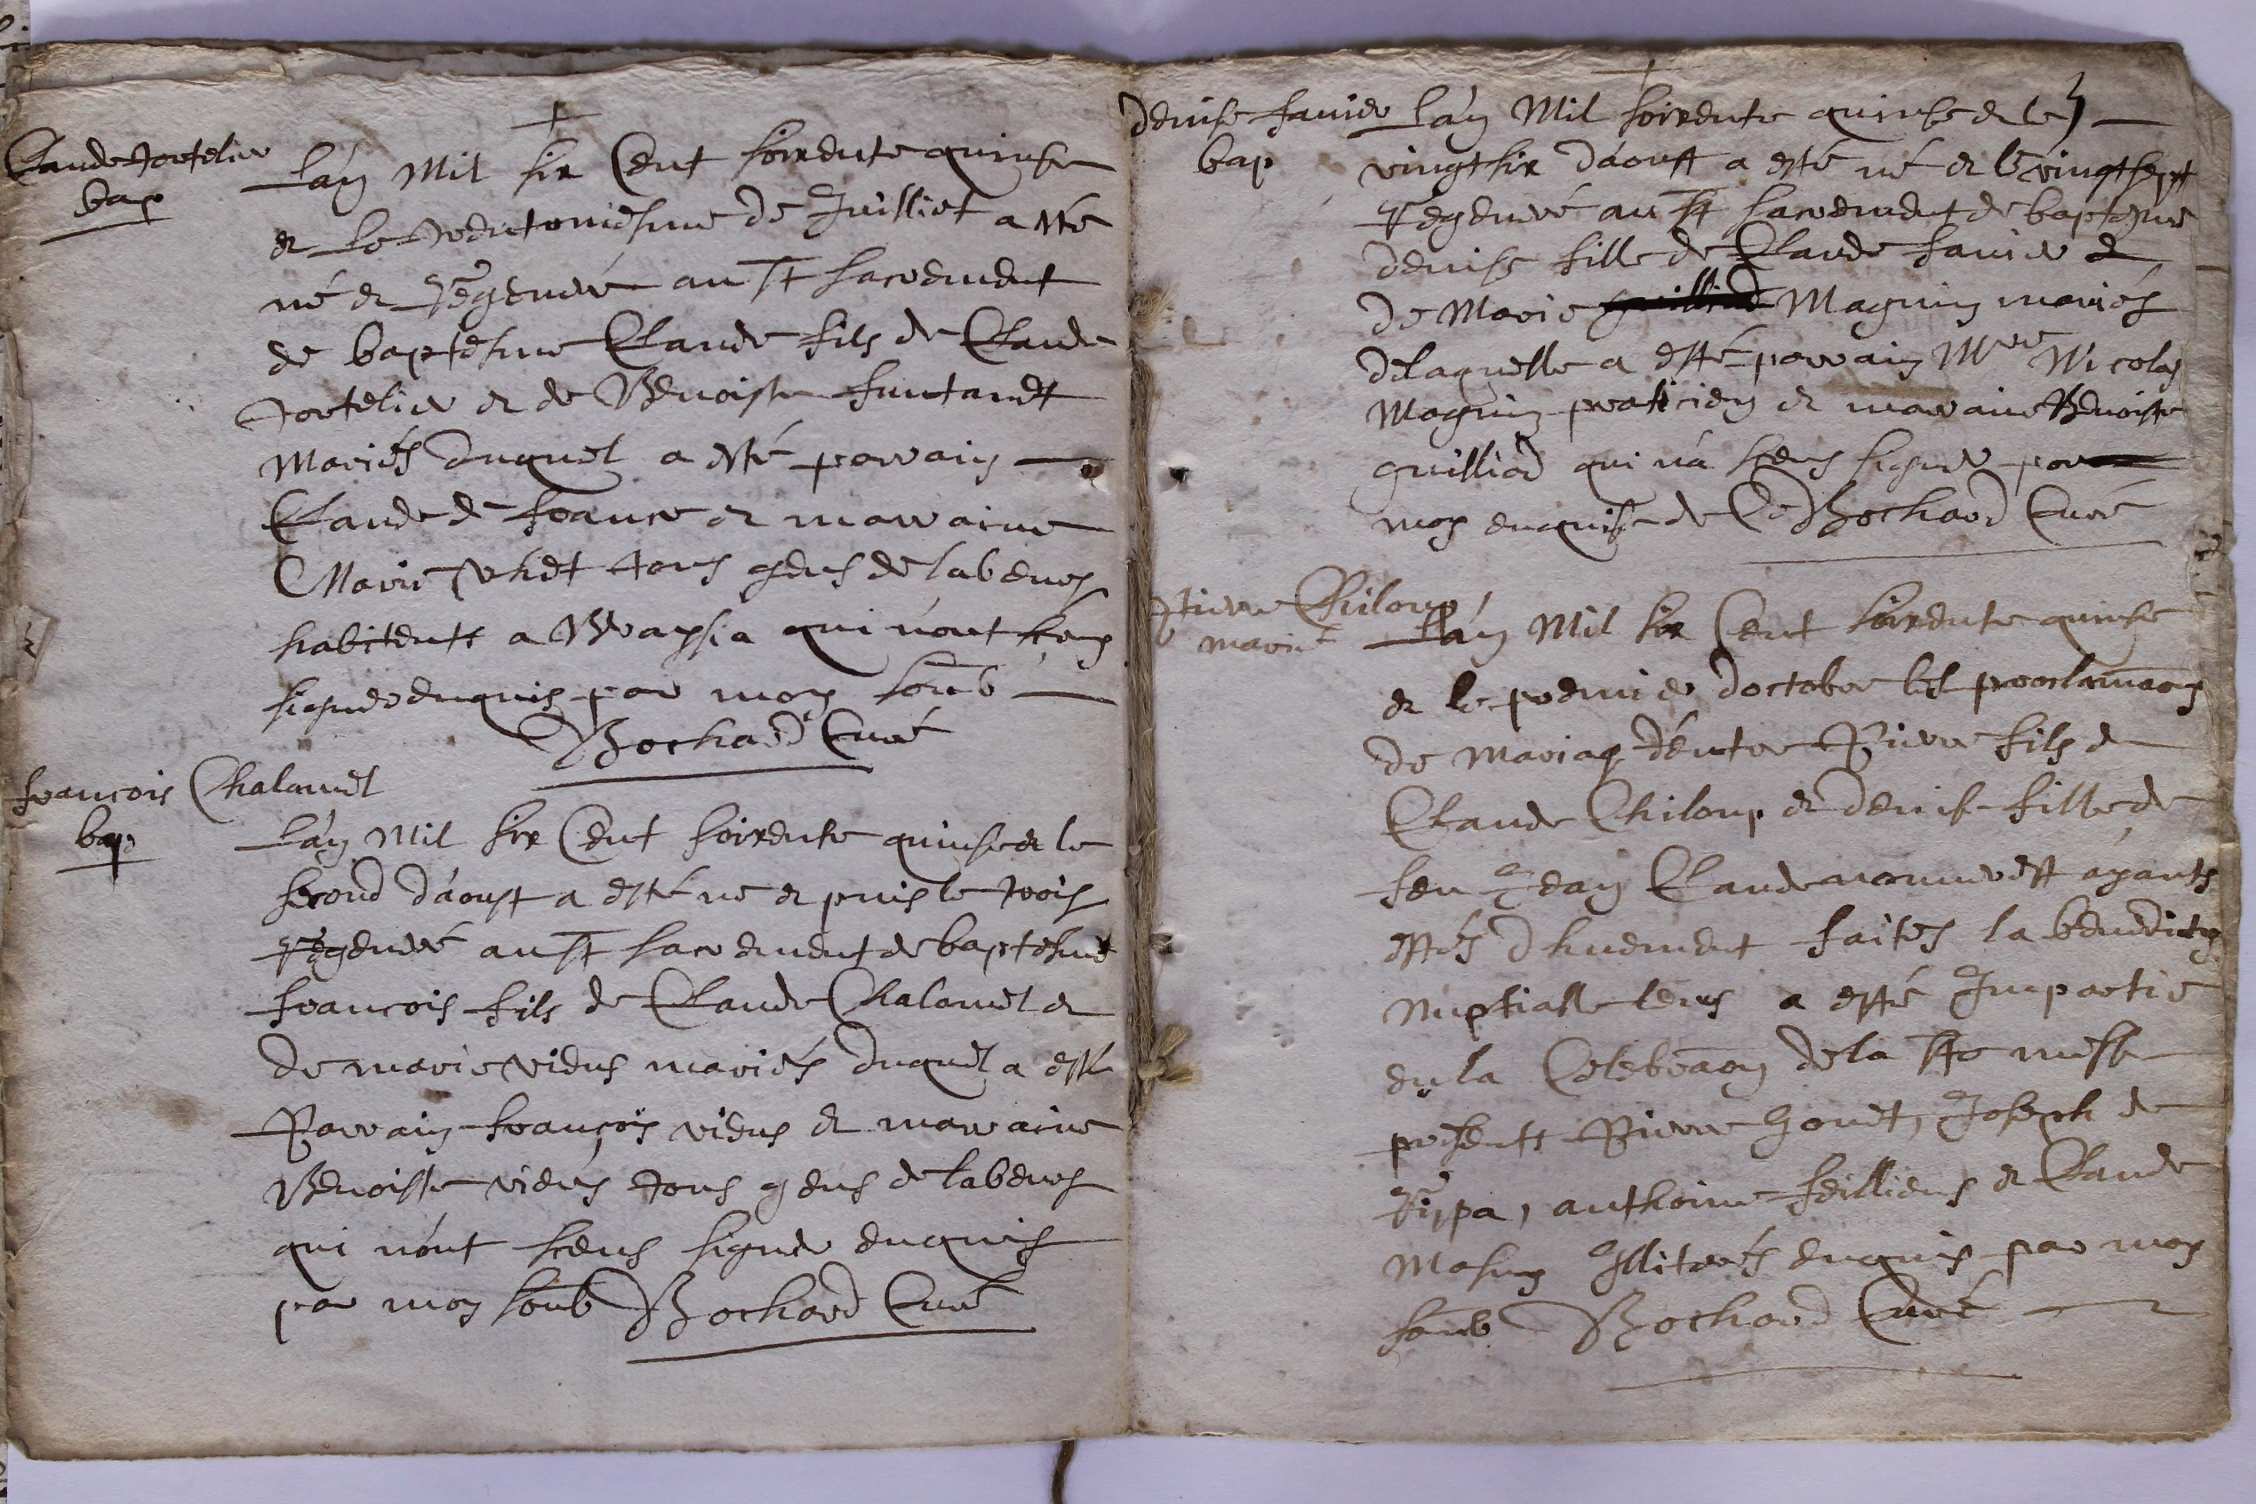 Claude Tortelier
bap
L'an Mil six Cent soixente quinse
et le trentoniesme de Juilliet a esté
né et Regeneré au St sacrement
de baptesme Claude fils de Claude
Tortelier et de Benoiste
Mariés duquel a esté parrain
Claude de france et marraine
Marie tous gens de labeurs
habitents a qui n'ont sceus
signer enquis par moy soub
Bochard Curé
francois Chalamel
bap
L'an Mil six Cent soixente quinse et le
second d'aoust a esté né et puis le trois
Regeneré au St sacrement de baptesme
francois fils de Claude Chalamel et
de marie vieus mariés duquel a esté
Parrain françois vieus et marraine
Benoiste vieus tous gens de labeurs
qui n'ont sceus signer enquis
par moy soub Bochard Curé
denise favier L'an Mil soixente quinse et le
bap vingt six d'aoust a esté né et le vingt sept
Regeneré au St sacrement de baptesme
denise fille de Claude favier et
de Marie Magnin mariés
de laquelle a esté parrain Mre Nicolas
Magnin praticien et marraine Benoiste
guilliod qui n'a sceus signer par
moy enquise de Ce Bochard Curé
Pierre Chiloup
marié L'an Mil six Cent soixente quinse
et le premier d'octobre les proclamaons
de Mariag d'entre Pierre fils de
Claude Chiloup et denise fille de
feu Jean Claude ayants
estés dhuement faites la benediction
Nuptialle leurs a esté Impartie
en la Celebraon de la Ste messe
presents Pierre gouet, Joseph de
Rippa, anthoine feilliens et Claude
Masuy Illiterés enquis par moy
soub Bochard Curé